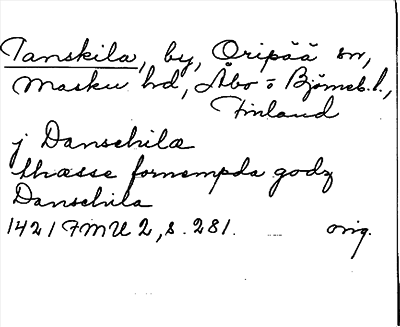 Tanskila, by, Oripää sn,
Masku hd, Åbo o Björneb. l.,
Finland
j Danschilæ
thæsse fornempda godz
Danschila
1421 FMU 2, s. 281. orig.